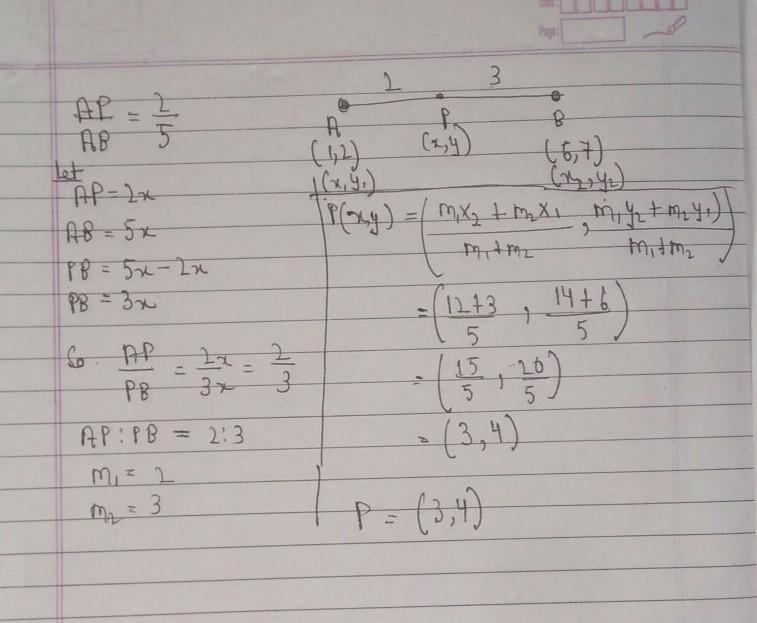 Page:
AP/AB = 2/5
Let
AP = 2x
AB = 5x
PB = 5x - 2x
PB = 3x
So. AP/PB = 2x/3x = 2/3
AP : PB = 2:3
m₁ = 2
m₂ = 3
2 3
A P B
(1,2) (x,y) (6,7)
(x,y₁) (x₂,y₂)
P(x,y) = ( m₁x₂ + m₂x₁ / m₁+m₂ , m₁y₂ + m₂y₁ / m₁+m₂ )
= ( 12+3 / 5 , 14+6 / 5 )
= ( 15/5 , 20/5 )
= (3,4)
P = (3,4)